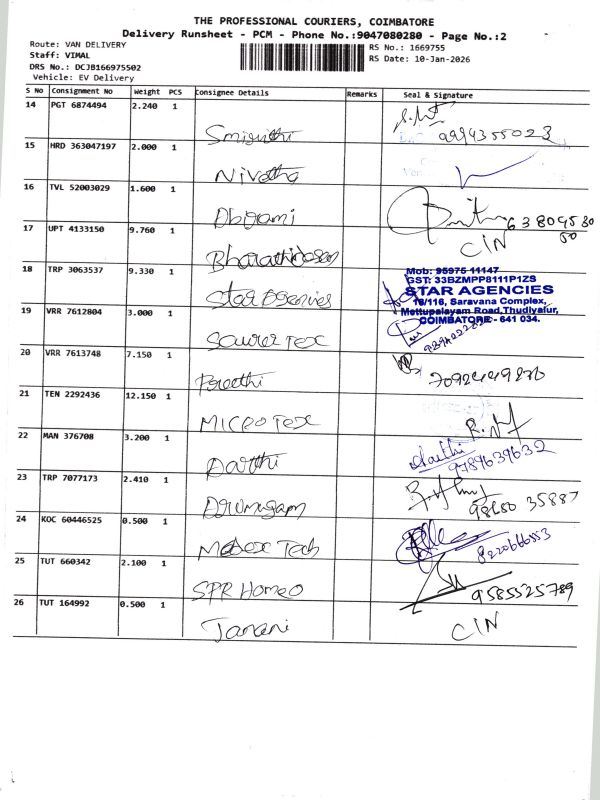 THE PROFESSIONAL COURIERS, COIMBATORE
Delivery Runsheet - PCM - Phone No.:9047080280 - Page No.:2
Route: VAN DELIVERY
Staff: VIMAL
DRS No.: DCJB166975502
Vehicle: EV Delivery
RS No.: 1669755
RS Date: 10-Jan-2026
S No Consignment No Weight PCS Consignee Details Remarks Seal & Signature
14 PGT 6874494 2.240 1
9994355023
15 HRD 363047197 2.000 1 Nivetha
16 TVL 52003029 1.600 1 Abirami
17 UPT 4133150 9.760 1 Bharathidasan
CIN
18 TRP 3063537 9.330 1 Star Agencies
Mob: 95975 11147
GST: 33BZMPP8111P1ZS
STAR AGENCIES
16/116, Saravana Complex,
Mettupalayam Road,Thudiyalur,
COIMBATORE - 641 034.
19 VRR 7612804 3.000 1 Saurer Tex
20 VRR 7613748 7.150 1 Preethi
21 TEN 2292436 12.150 1 MICRO Tex
22 MAN 376708 3.200 1
9789639632
23 TRP 7077173 2.410 1 Arumugam
24 KOC 60446525 0.500 1
25 TUT 660342 2.100 1 SPR Homeo
9585525789
26 TUT 164992 0.500 1 Janani
CIN